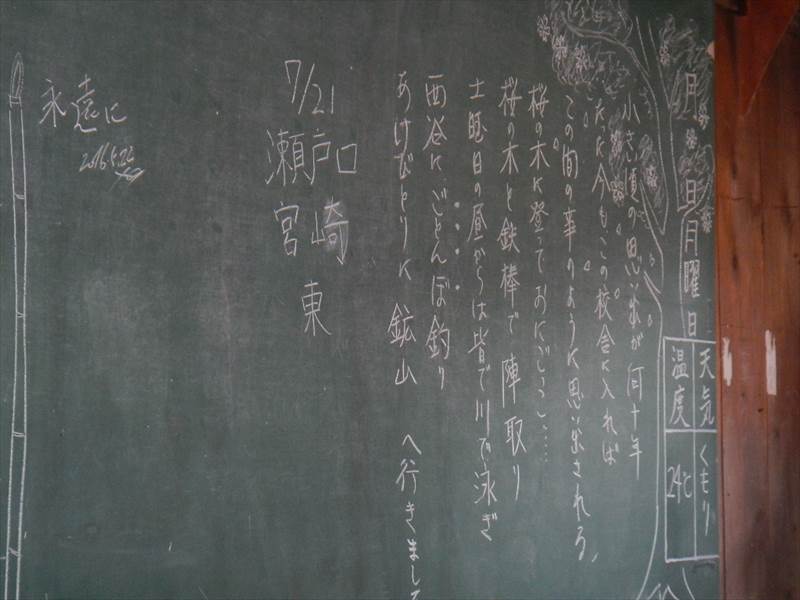 月 日 月曜日
天気 くもり
温度 24℃
小さい頃の思い出が何十年
たった今もこの校舎に入れば
この間の事のように思い出される、
桜の木に登っておにごっこ・・・・
桜の木と鉄棒で陣取り
土曜日の昼からは皆で川で泳ぎ
西谷にごとんぼ釣り
あけびとりに 鉱山 へ行きまし
7/21
瀬戸口
宮崎
東
永遠に
2016.5.22